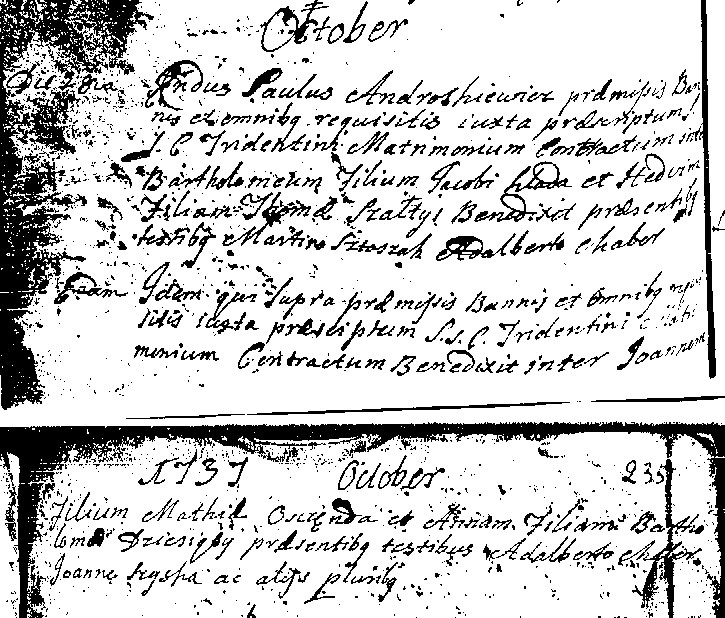 October
Die 28va Rndus Paulus Androshiewicz præmissis Ban
nis et omnibq requisitis iuxta præscriptum
S. C. Tridentini Matrimonium Contractum inter
Bartholomeum Filium Jacobi et Hedvim
Filiam Thomæ Szałtyi Benedixit præsentibq
testibq Martino Ktoszak Adalberto Chaber
Eadem Idem qui supra præmissis Bannis et omnibq requi
sitis iuxta præsciptum S. S. C. Tridentini Matri
monium Contractum Benedixit inter Joannem
1737 October 235
Filium Mathiæ Oscenda et Annam Filiam Bartho
lomæi præsentibq testibus Adalberto Chaber
Joanne szysha ac alijs pluribq